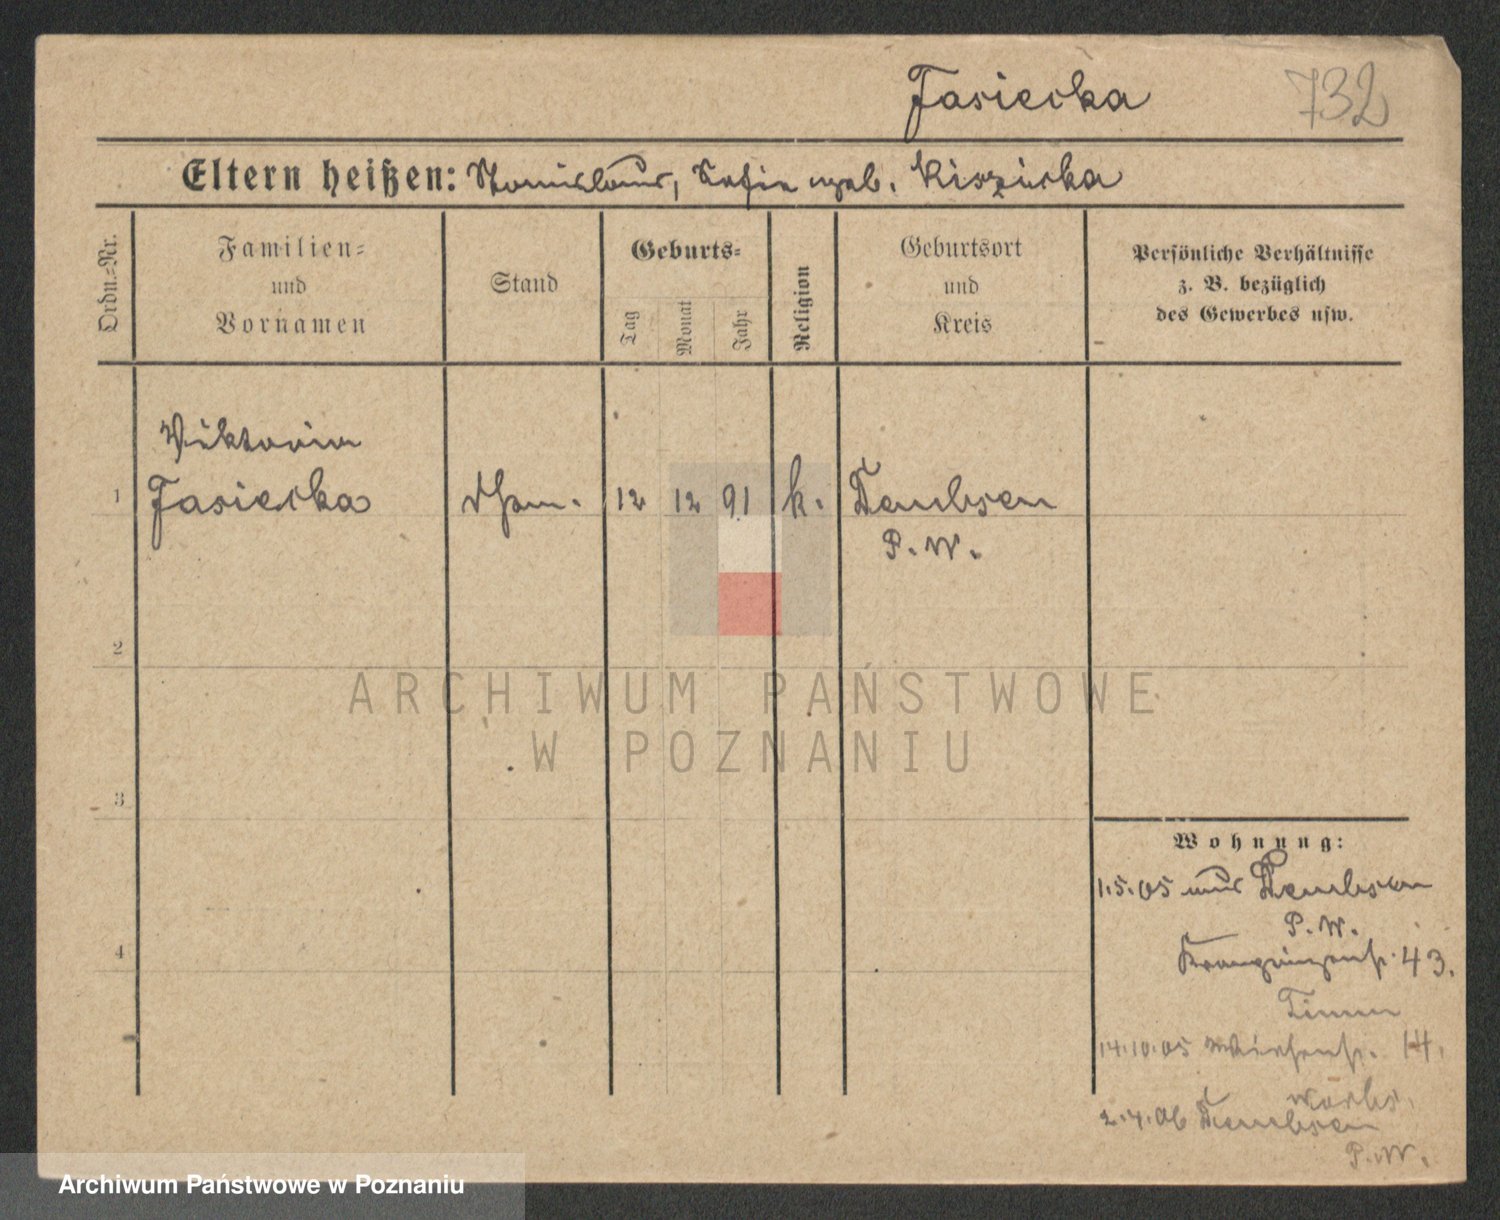 Jasiecka 732
Eltern heißen: Stanislaus, Sofia geb. Kiszicka
Ordn.-Nr.
Familien-
und
Vornamen
Stand
Geburts-
Tag
Monat
Jahr
Religion
Geburtsort
und
Kreis
Persönliche Verhältnisse
z. B. bezüglich
des Gewerbes usw.
Viktoria
1 Jasiecka 12 12 91 k. Dembsen
P. W.
2
3
4
Wohnung:
1.5.05 aus Dembsen
P. W.
Kronprinzenstr. 43.
Timm
14.10.05 14.
2.4.06 Dembsen
P. W.
ARCHIWUM PAŃSTWOWE
W POZNANIU
Archiwum Państwowe w Poznaniu